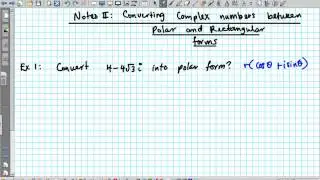 Notes II: Converting Complex numbers between
Polar and Rectangular
forms
Ex 1: Convert 4-4√3 i into polar form? r(cosθ +isinθ)